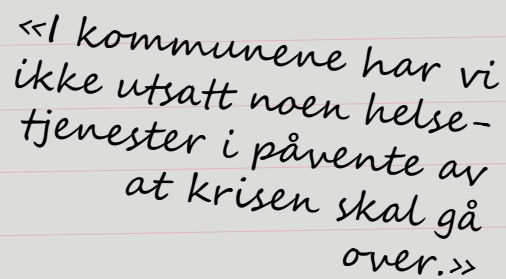 «I kommunene har vi
ikke utsatt noen helse-
tjenester i påvente av
at krisen skal gå
over.»